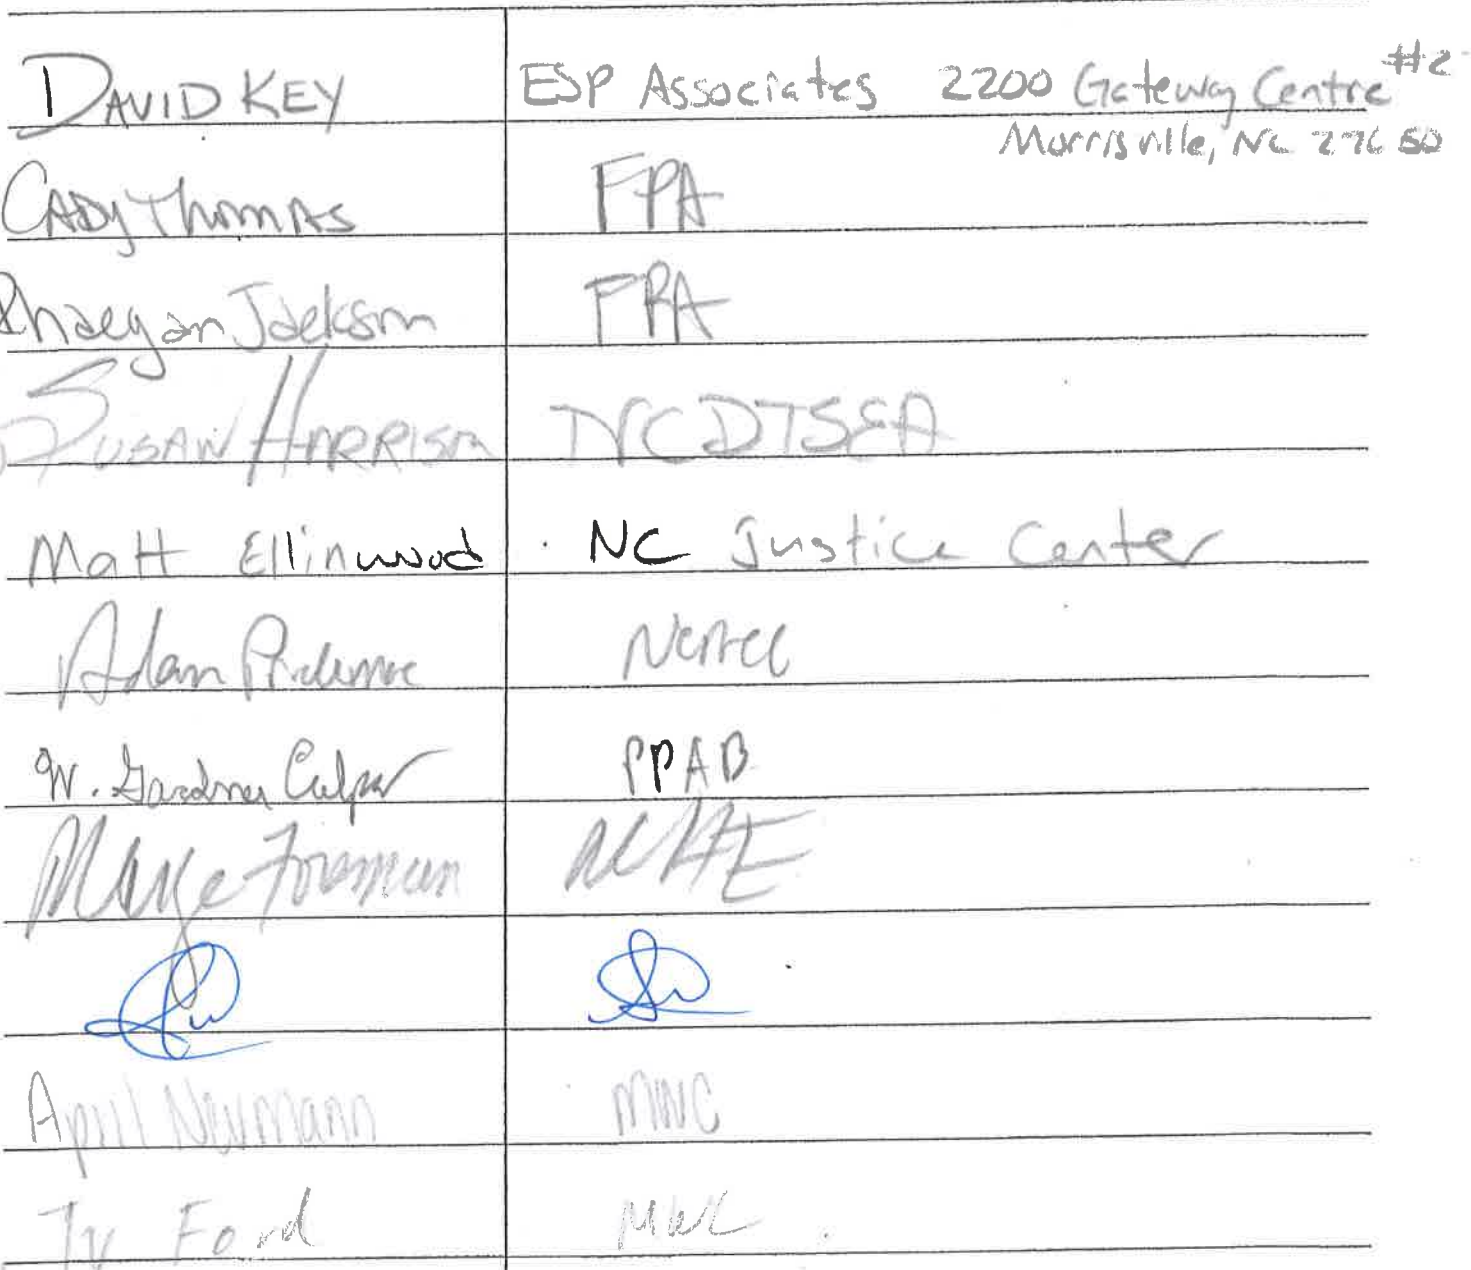 DAVID KEY ESP Associates 2200 Gateway Centre #2
Morrisville, NC 27650
CADY Thomas FPA
Rhaegan Jackson FPA
SUSAN HARRISON NCDTSEA
Matt Ellinwood NC Justice Center
Adam
W. Gardner Culpepper PPAB
Marge Foreman NCAE
April Neumann MWC
Ty Ford MWC